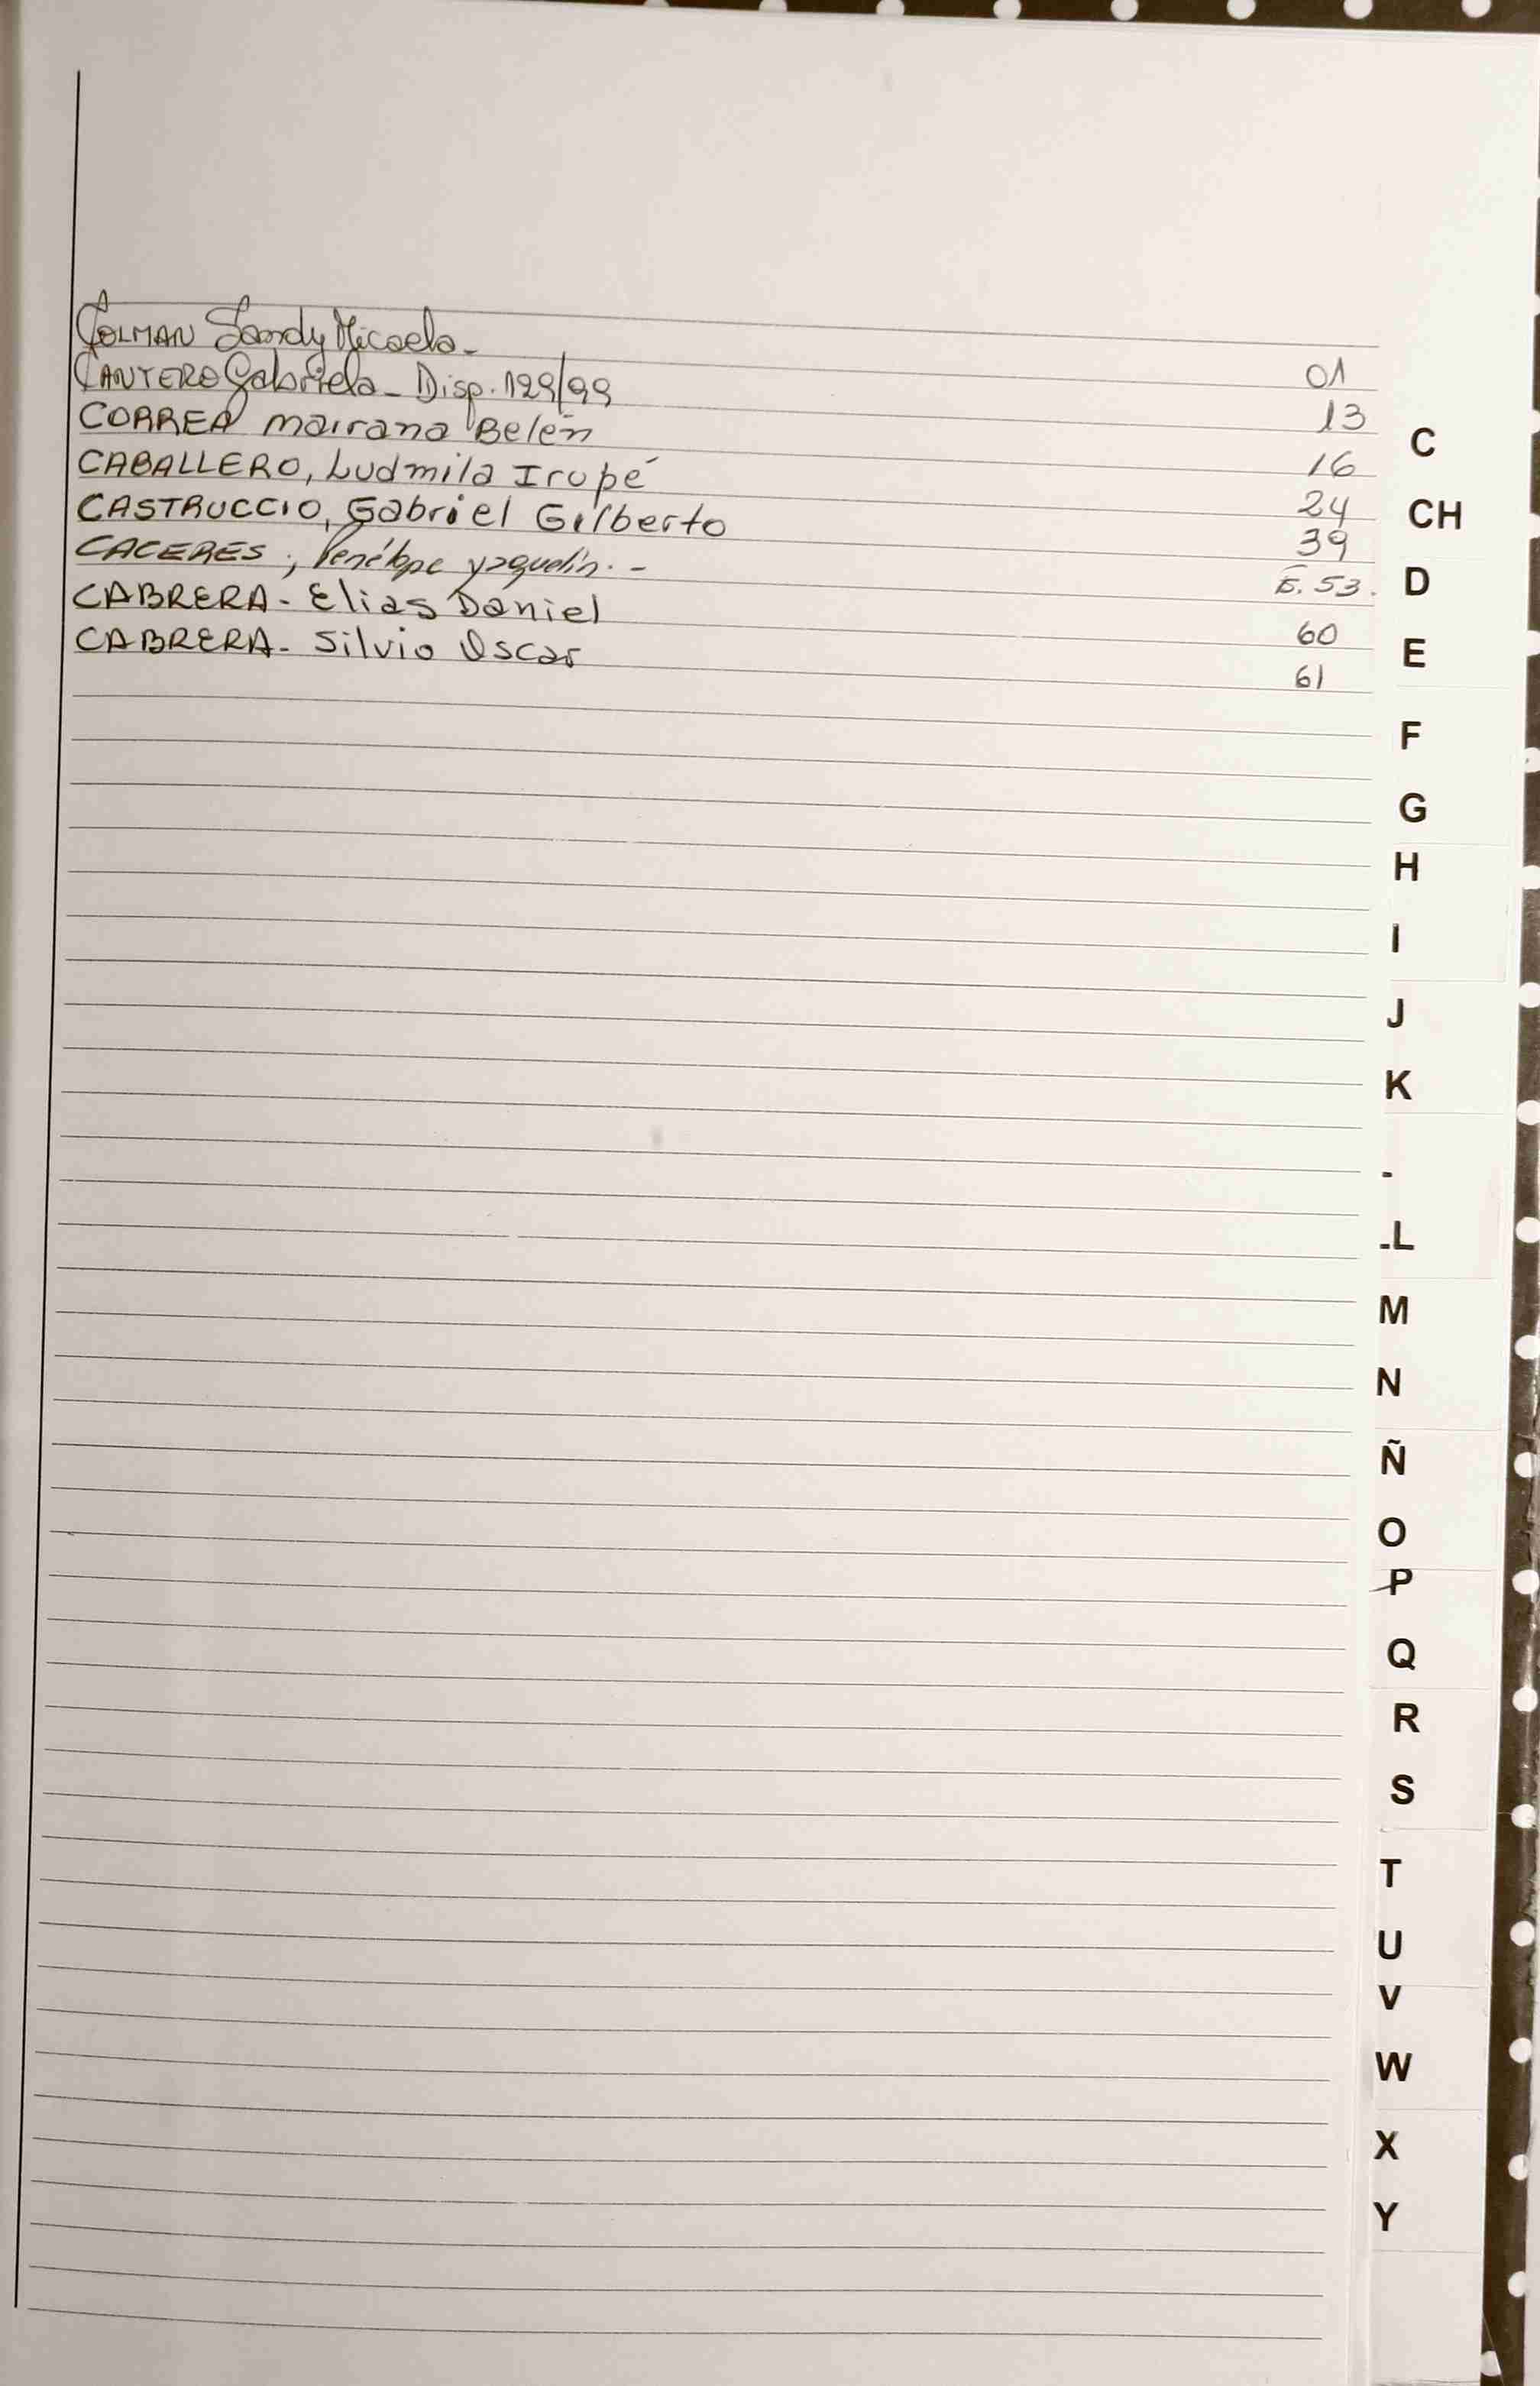 COLMAN Sandy Micaela - 01
CANTERO Gabriela - Disp. 129/99 13
CORREA Mairana Belén 16
CABALLERO, Ludmila Irupé 24
CASTRUCCIO, Gabriel Gilberto 39
CACERES, Penélope yaquelin. - F. 53.
CABRERA - Elias Daniel 60
CABRERA - Silvio Oscar 61
C
CH
D
E
F
G
H
I
J
K
-
-L
M
N
Ñ
O
P
Q
R
S
T
U
V
W
X
Y